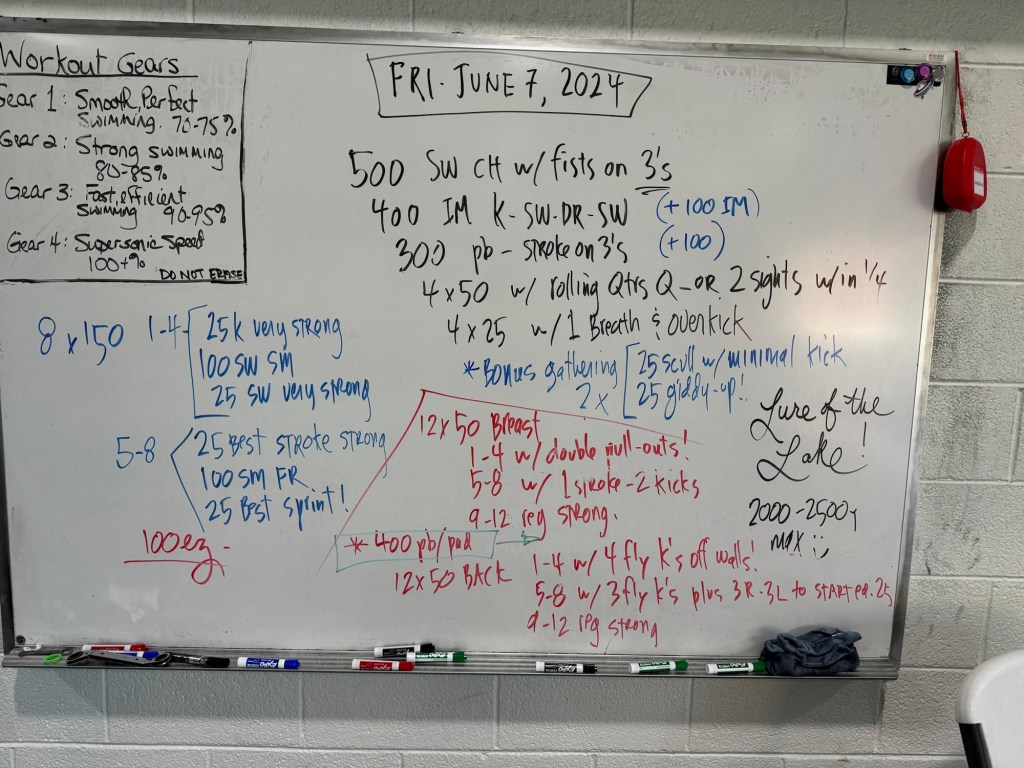 Workout Gears
Gear 1: Smooth, Perfect
Swimming. 70-75%
Gear 2: Strong swimming
80-85%
Gear 3: Fast, efficient
Swimming 90-95%
Gear 4: Supersonic Speed
100+%
DO NOT ERASE
FRI. JUNE 7, 2024
500 SW CH w/ fists on 3's
400 IM K-SW-DR-SW (+100 IM)
300 pb - stroke on 3's (+100)
4x50 w/ rolling Qtrs Q-OR 2 sights w/in 1/4
4x25 w/ 1 Breath & overkick
*Bonus gathering
2x [25 scull w/ minimal kick
25 giddy-up!
8x150 1-4 [25k very strong
100 SW SM
25 SW very strong
5-8 < 25 Best stroke strong
100 sm FR
25 Best sprint!
100 ez -
12x50 Breast
1-4 w/ double pull-outs!
5-8 w/ 1 stroke-2 kicks
9-12 reg strong.
* 400 pb/pad
12x50 BACK
1-4 w/ 4 fly k's off walls!
5-8 w/ 3 fly k's plus 3R-3L to START ea. 25
9-12 reg strong
Lure of the
Lake!
2000-2500y
max :)
EXPO